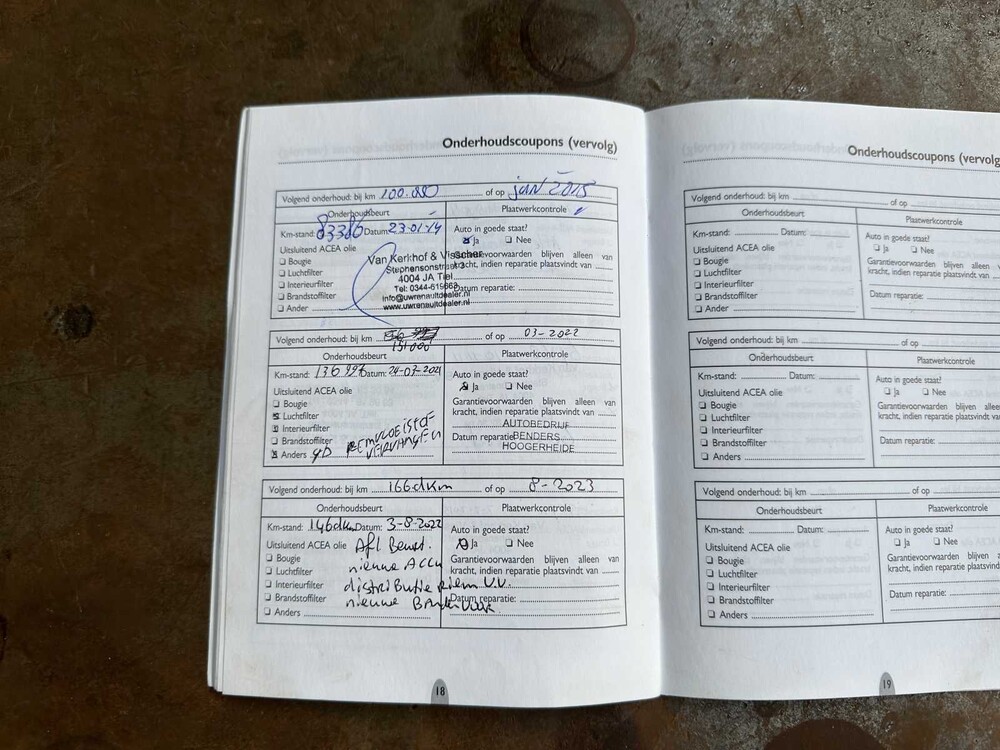 Onderhoudscoupons (vervolg)
Volgend onderhoud: bij km 100.000 of op jan 2015
Onderhoudsbeurt
Plaatwerkcontrole
Km-stand: 83386 Datum: 23-01-14
Auto in goede staat?
Ja Nee
Uitsluitend ACEA olie
Bougie
Luchtfilter
Interieurfilter
Brandstoffilter
Ander
Garantievoorwaarden blijven alleen van
kracht, indien reparatie plaatsvindt van
Datum reparatie:
Van Kerkhof & Visscher
Stephensonstraat 3
4004 JA Tiel
Tel: 0344-615663
info@uwrenaultdealer.nl
www.uwrenaultdealer.nl
Volgend onderhoud: bij km 151000 of op 03-2022
Onderhoudsbeurt
Plaatwerkcontrole
Km-stand: Datum: 24-03-2021
Auto in goede staat?
Ja Nee
Uitsluitend ACEA olie
Bougie
Luchtfilter
Interieurfilter
Brandstoffilter
Anders REMVLOEISTOF
VERVANGEN
Garantievoorwaarden blijven alleen van
kracht, indien reparatie plaatsvindt van
Datum reparatie:
AUTOBEDRIJF
BENDERS
HOOGERHEIDE
Volgend onderhoud: bij km 166dkm of op 8-2023
Onderhoudsbeurt
Plaatwerkcontrole
Km-stand: 146dkm Datum: 3-8-2022
Auto in goede staat?
Ja Nee
Uitsluitend ACEA olie Afl Beurt.
Bougie nieuwe ACCU
Luchtfilter
Interieurfilter distributie riem V.V.
Brandstoffilter nieuwe Banden
Anders
Garantievoorwaarden blijven alleen van
kracht, indien reparatie plaatsvindt van
Datum reparatie:
18
Onderhoudscoupons (vervolg
Volgend onderhoud: bij km of op
Onderhoudsbeurt
Plaatwerkcontrole
Km-stand: Datum:
Auto in goede staat?
Ja Nee
Uitsluitend ACEA olie
Bougie
Luchtfilter
Interieurfilter
Brandstoffilter
Ander
Garantievoorwaarden blijven alleen
kracht, indien reparatie plaatsvindt
Datum reparatie:
Volgend onderhoud: bij km of op
Onderhoudsbeurt
Plaatwerkcontrole
Km-stand: Datum:
Auto in goede staat?
Ja Nee
Uitsluitend ACEA olie
Bougie
Luchtfilter
Interieurfilter
Brandstoffilter
Anders
Garantievoorwaarden blijven alleen
kracht, indien reparatie plaatsvindt
Datum reparatie:
Volgend onderhoud: bij km of op
Onderhoudsbeurt
Plaatwerkcontrole
Km-stand: Datum:
Auto in goede staat?
Ja Nee
Uitsluitend ACEA olie
Bougie
Luchtfilter
Interieurfilter
Brandstoffilter
Anders
Garantievoorwaarden blijven alleen
kracht, indien reparatie plaatsvindt
Datum reparatie:
19